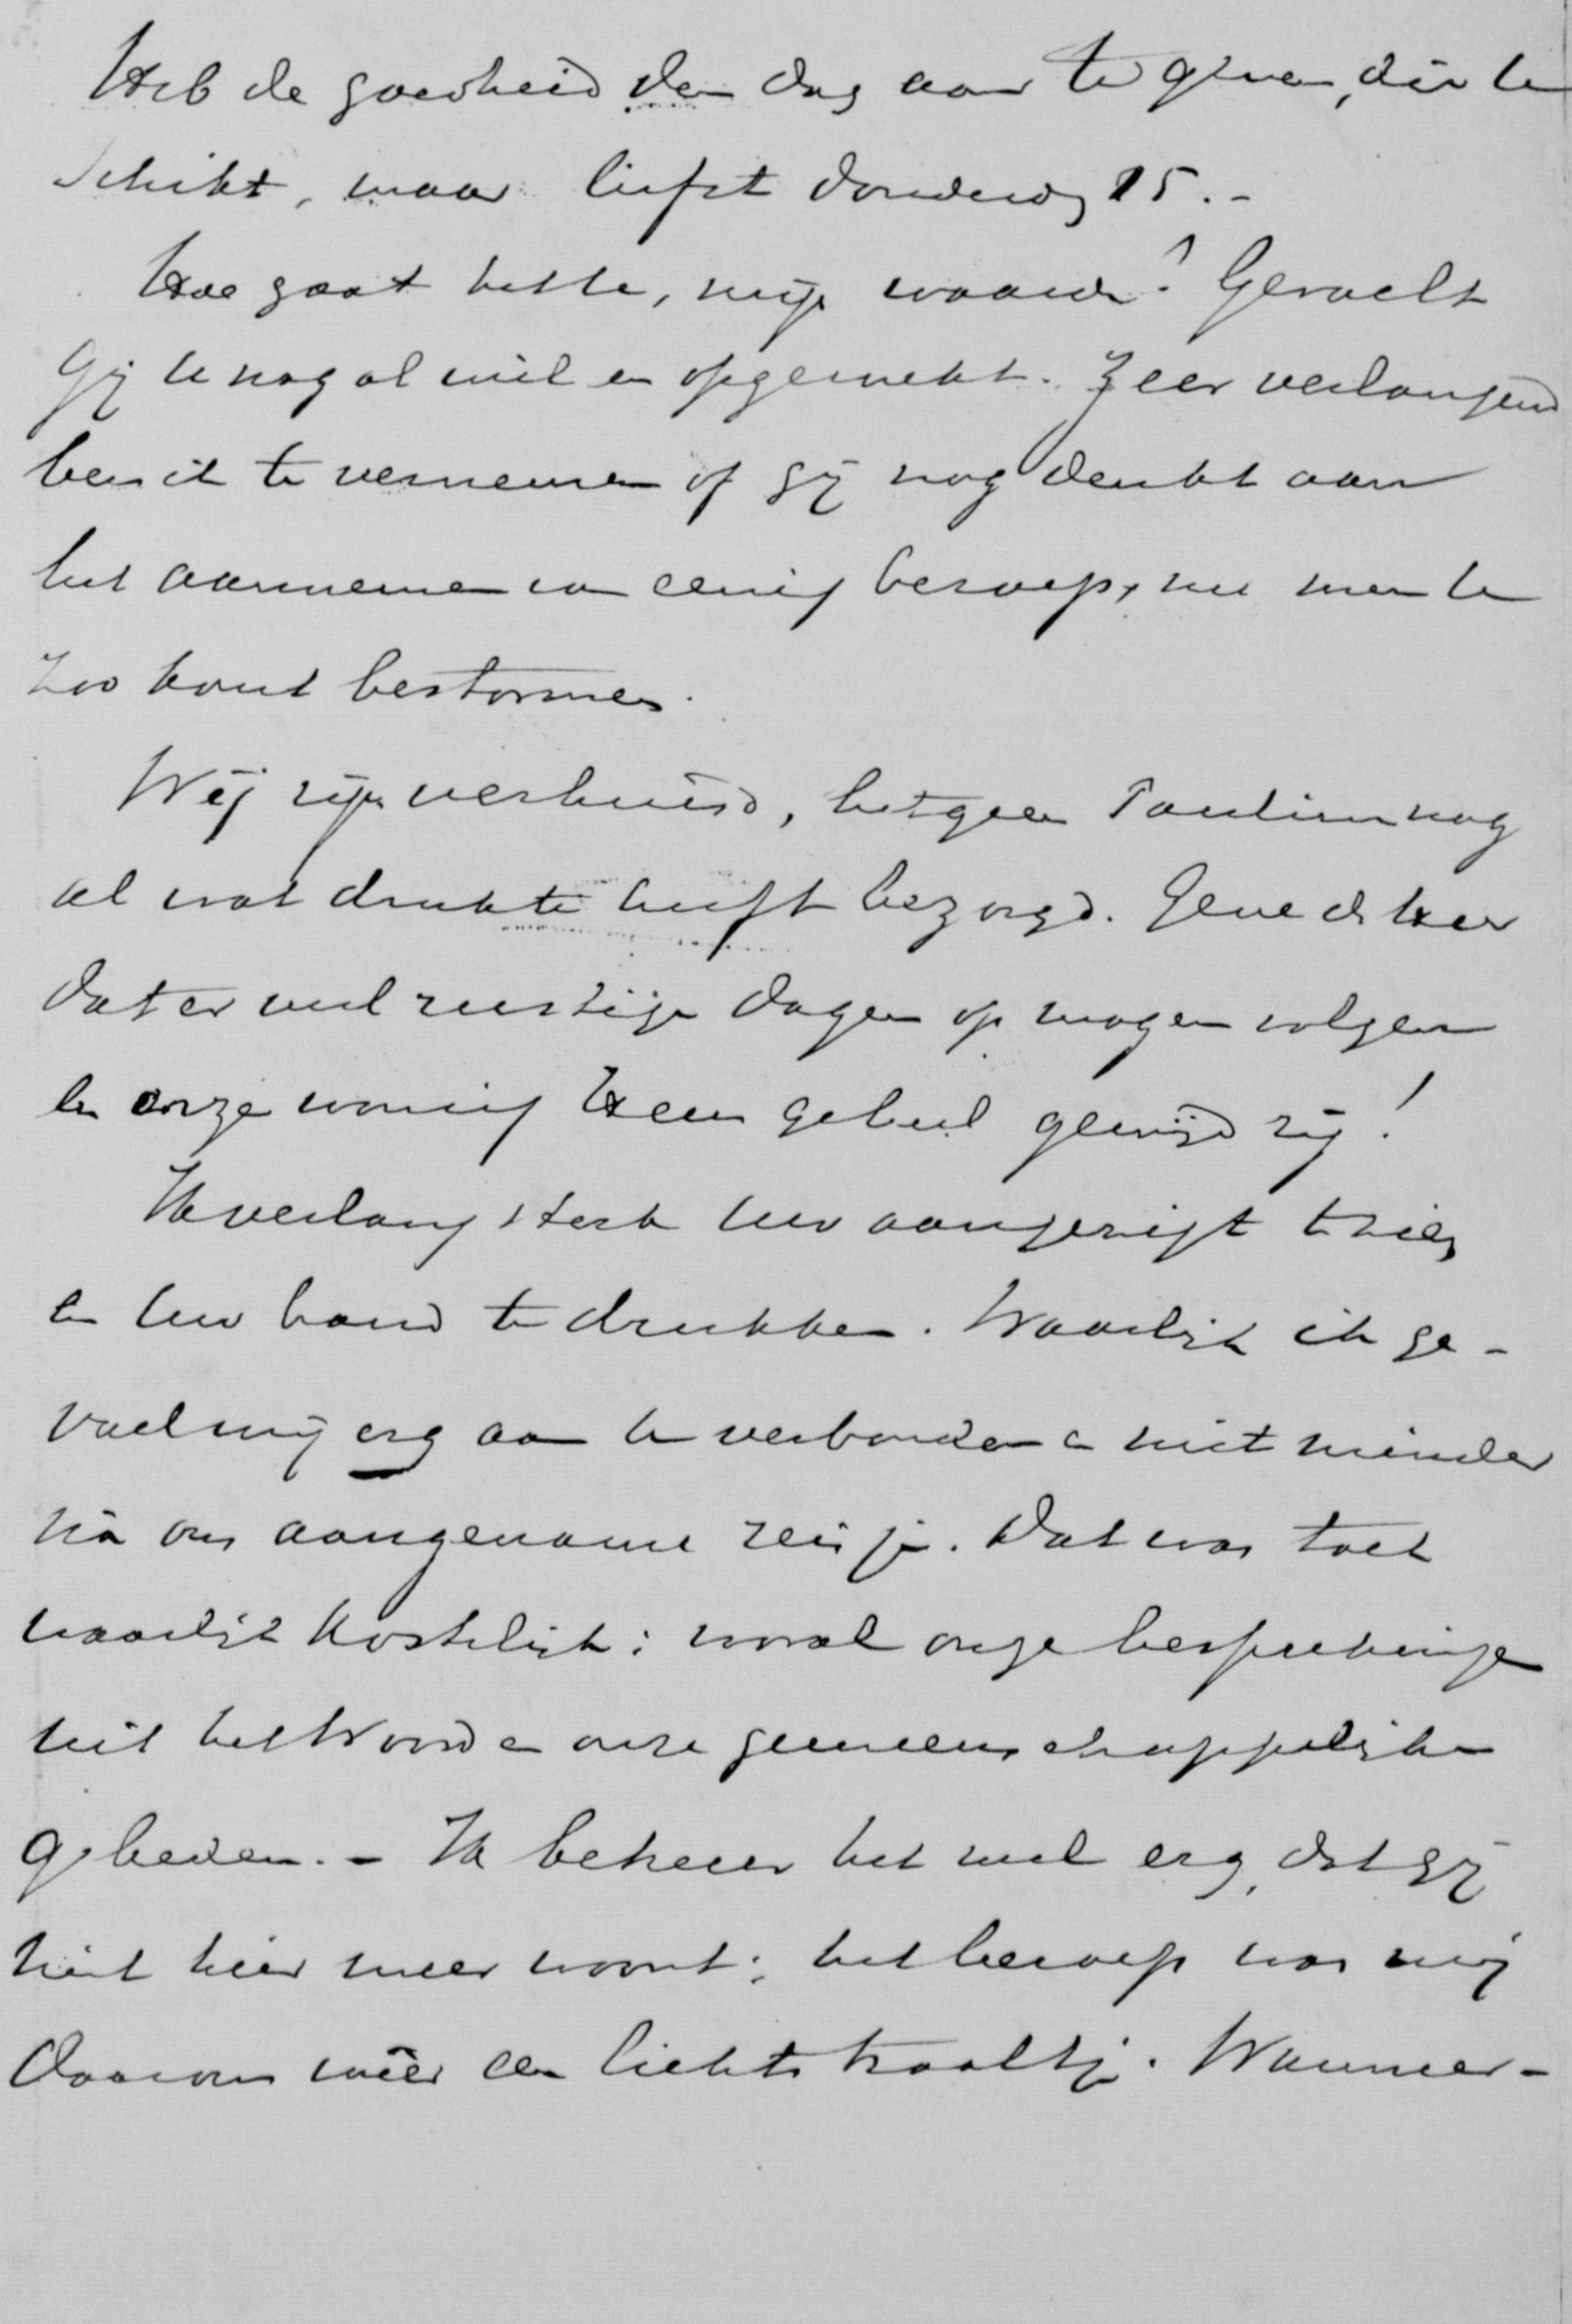 Heb de goedheid den dag aan te geven, die U
schikt, maar liefst donderdag 15. -
Hoe gaat het U, mijn waarde? Gevoelt
Gij U nog al wel en opgewekt. Zeer verlangend
ben ik te vernemen of gij nog denkt aan
het aannemen van eenig beroep, nu men U
zoo komt bestormen.
Wij zijn verhuisd, hetgeen Pauline nog
al wat drukte heeft bezorgd. Geve de Heer
dat er veel rustige dagen op mogen volgen
en onze woning Hem geheel gewijd zij!
Ik verlang sterk Uw aangezigt te zien
en Uw hand te drukken. Waarlijk ik ge-
voel mij erg aan U verbonden en niet minder
ná ons aangename reisje. Dat was toch
waarlijk kostelijk: vooral onze besprekingen
uit het Woord en onze gemeenschappelijke
gebeden. - Ik betreur het wel erg, dat gij
niet hier meer woont; het beroep was mij
daarom wéér een lichtstraaltje. Wanneer-